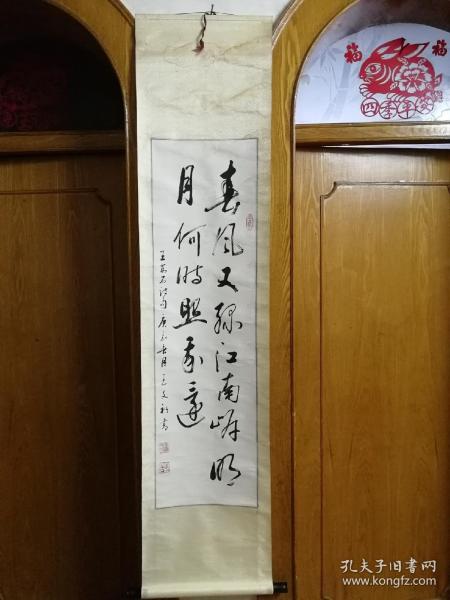 春风又绿江南岸明
月何时照我还
王安石诗句
月
书
福
福
四季平安
孔夫子旧书网
www.kongfz.com